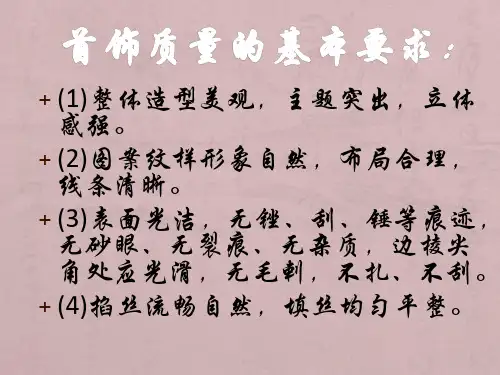 首饰质量的基本要求：
+ (1)整体造型美观，主题突出，立体
感强。
+ (2)图案纹样形象自然，布局合理，
线条清晰。
+ (3)表面光洁，无锉、刮、锤等痕迹，
无砂眼、无裂痕、无杂质，边棱尖
角处应光滑，无毛刺，不扎、不刮。
+ (4)掐丝流畅自然，填丝均匀平整。